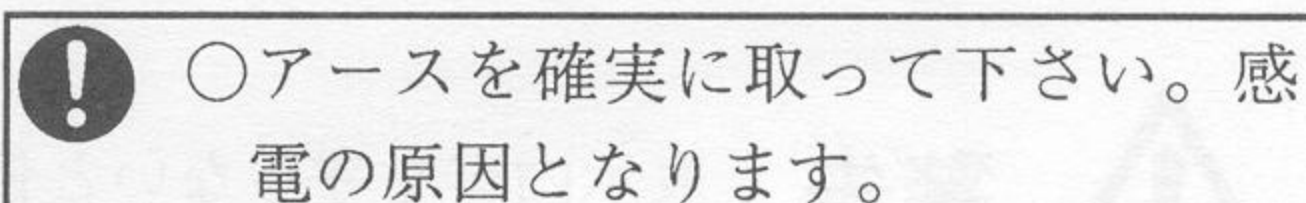 ○アースを確実に取って下さい。感
電の原因となります。